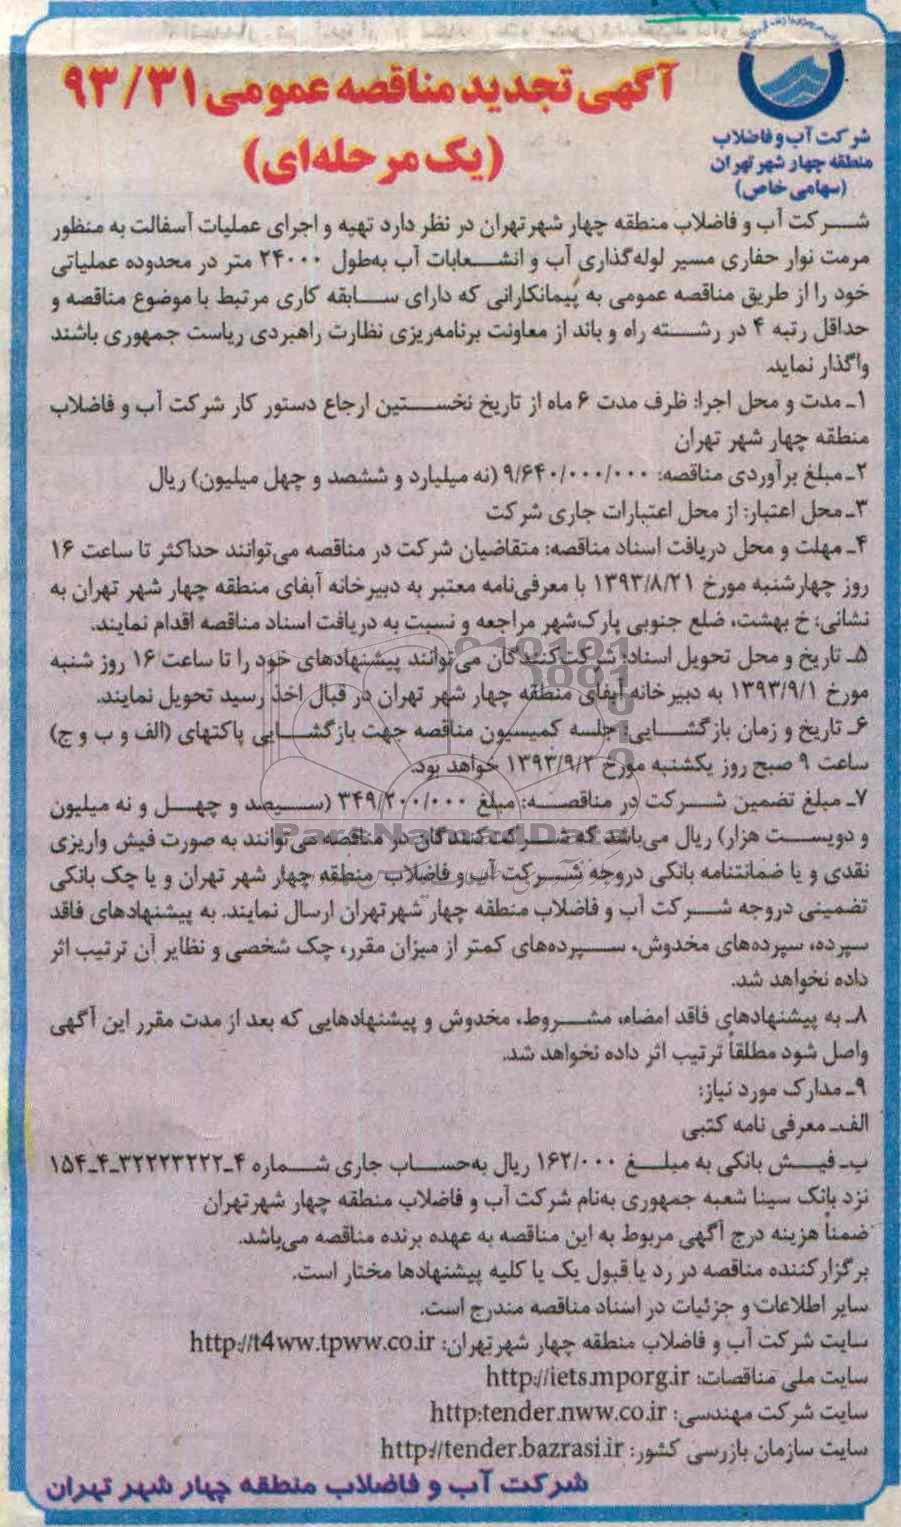 آگهی تجدید مناقصه عمومی ۹۳/۳۱
(یک مرحله‌ای)
شرکت آب و فاضلاب
منطقه چهار شهر تهران
(سهامی خاص)
شرکت آب و فاضلاب منطقه چهار شهر تهران در نظر دارد تهیه و اجرای عملیات آسفالت به منظور
مرمت نوار حفاری مسیر لوله‌گذاری آب و انشعابات آب به‌طول ۲۴۰۰۰ متر در محدوده عملیاتی
خود را از طریق مناقصه عمومی به پیمانکارانی که دارای سابقه کاری مرتبط با موضوع مناقصه و
حداقل رتبه ۴ در رشته راه و باند از معاونت برنامه‌ریزی نظارت راهبردی ریاست جمهوری باشند
واگذار نماید.
۱ـ مدت و محل اجرا: ظرف مدت ۶ ماه از تاریخ نخستین ارجاع دستور کار شرکت آب و فاضلاب
منطقه چهار شهر تهران
۲ـ مبلغ برآوردی مناقصه: ۹/۶۴۰/۰۰۰/۰۰۰ (نه میلیارد و ششصد و چهل میلیون) ریال
۳ـ محل اعتبار: از محل اعتبارات جاری شرکت
۴ـ مهلت و محل دریافت اسناد مناقصه: متقاضیان شرکت در مناقصه می‌توانند حداکثر تا ساعت ۱۶
روز چهارشنبه مورخ ۱۳۹۳/۸/۲۱ با معرفی‌نامه معتبر به دبیرخانه آبفای منطقه چهار شهر تهران به
نشانی: خ بهشت، ضلع جنوبی پارک‌شهر مراجعه و نسبت به دریافت اسناد مناقصه اقدام نمایند.
۵ـ تاریخ و محل تحویل اسناد: شرکت‌کنندگان می‌توانند پیشنهادهای خود را تا ساعت ۱۶ روز شنبه
مورخ ۱۳۹۳/۹/۱ به دبیرخانه آبفای منطقه چهار شهر تهران در قبال اخذ رسید تحویل نمایند.
۶ـ تاریخ و زمان بازگشایی: جلسه کمیسیون مناقصه جهت بازگشایی پاکتهای (الف و ب و ج)
ساعت ۹ صبح روز یکشنبه مورخ ۱۳۹۳/۹/۲ خواهد بود.
۷ـ مبلغ تضمین شرکت در مناقصه: مبلغ ۳۴۹/۲۰۰/۰۰۰ (سیصد و چهل و نه میلیون
و دویست هزار) ریال می‌باشد که شرکت‌کنندگان در مناقصه می‌توانند به صورت فیش واریزی
نقدی و یا ضمانتنامه بانکی دروجه شرکت آب و فاضلاب منطقه چهار شهر تهران و یا چک بانکی
تضمینی دروجه شرکت آب و فاضلاب منطقه چهار شهر تهران ارسال نمایند. به پیشنهادهای فاقد
سپرده، سپرده‌های مخدوش، سپرده‌های کمتر از میزان مقرر، چک شخصی و نظایر آن ترتیب اثر
داده نخواهد شد.
۸ـ به پیشنهادهای فاقد امضاء، مشروط، مخدوش و پیشنهادهایی که بعد از مدت مقرر این آگهی
واصل شود مطلقاً ترتیب اثر داده نخواهد شد.
۹ـ مدارک مورد نیاز:
الف‌ـ معرفی نامه کتبی
ب‌ـ فیش بانکی به مبلغ ۱۶۲/۰۰۰ ریال به‌حساب جاری شماره ۴ـ۳۲۲۲۳۲۲۲ـ۴ـ۱۵۴
نزد بانک سینا شعبه جمهوری به‌نام شرکت آب و فاضلاب منطقه چهار شهر تهران
ضمناً هزینه درج آگهی مربوط به این مناقصه به عهده برنده مناقصه می‌باشد.
برگزارکننده مناقصه در رد یا قبول یک یا کلیه پیشنهادها مختار است.
سایر اطلاعات و جزئیات در اسناد مناقصه مندرج است.
سایت شرکت آب و فاضلاب منطقه چهار شهر تهران: http://t4ww.tpww.co.ir
سایت ملی مناقصات: http://iets.mporg.ir
سایت شرکت مهندسی: http:tender.nww.co.ir
سایت سازمان بازرسی کشور: http://tender.bazrasi.ir
شرکت آب و فاضلاب منطقه چهار شهر تهران